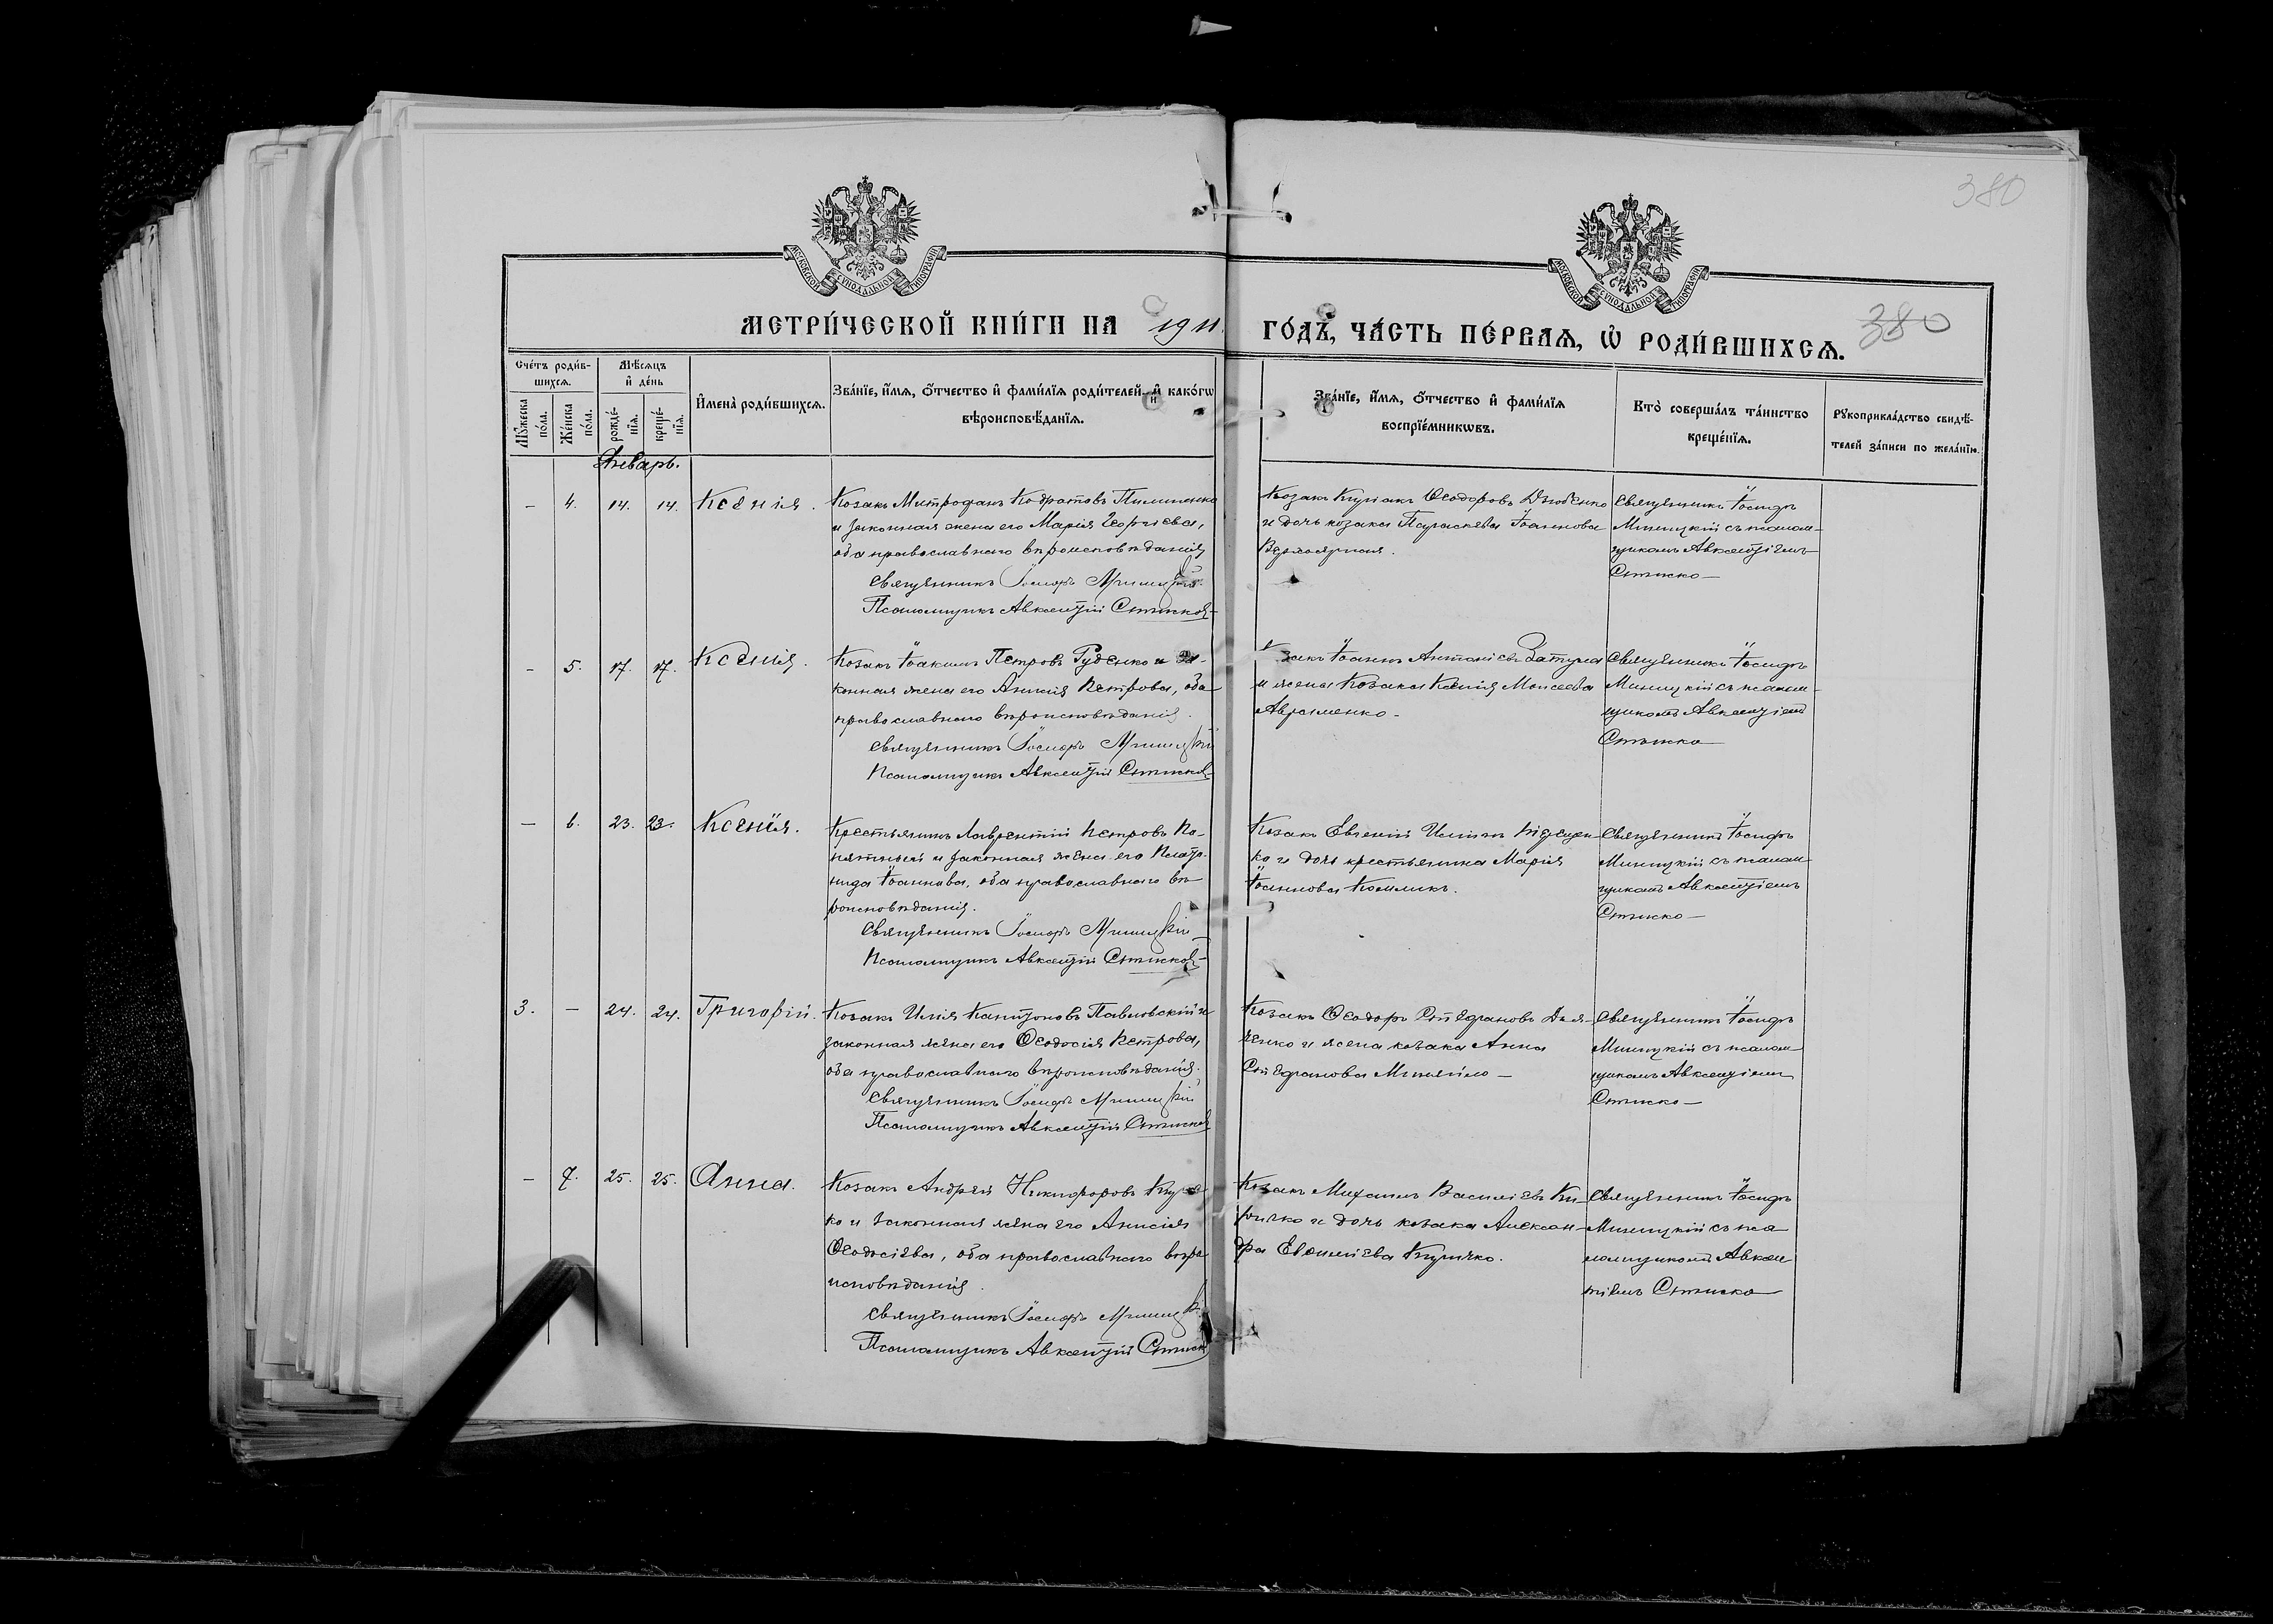 380
МОСКОВСКОЙ СѴНОДАЛЬНОЙ ТИПОГРАФІИ
МОСКОВСКОЙ СѴНОДАЛЬНОЙ ТИПОГРАФІИ
МЕТРИ́ЧЕСКОЙ КНИ́ГИ НА 1911
ГО́ДЪ, ЧА́СТЬ ПЕ́РВАѦ, Ѡ҆ РОДИ́ВШИХСѦ.
380
Сче́тъ роди́в-
шихсѧ.
Мѣ́сѧцъ
и҆ де́нь
Мꙋ́жеска
по́ла.
Же́нска
по́ла.
рожде́-
нїѧ.
креще́-
нїѧ.
И҆мена̀ роди́вшихсѧ.
Зва́нїе, и҆́мѧ, ѻ҆́тчество и҆ фами́лїѧ роди́телей, и҆ како́гѡ
вѣроисповѣ́данїѧ.
Зва́нїе, и҆́мѧ, ѻ҆́тчество и҆ фами́лїѧ
воспрїе́мникѡвъ.
Кто̀ соверша́лъ та́инство
креще́нїѧ.
Рꙋкоприкла́дство свидѣ́-
телей за́писи по жела́нїю.
Январь.
– 4. 14. 14. Ксенія.
Козакъ Митрофанъ Кодратовъ Пилипенко
и законная жена его Марія Георгіева,
оба православнаго вѣроисповѣданія
Священникъ Іосифъ
Псаломщикъ Авксентій
Козакъ Киріакъ Ѳеодоровъ Дзюбенко
и дочь козака Параскева Іоаннова
Священникъ Іосифъ
съ псалом-
щикомъ Авксентіемъ
– 5. 17. 17. Ксенія.
Козакъ Іоакимъ Петровъ Руденко и за-
конная жена его Анисія Петрова, оба
православнаго вѣроисповѣданія.
Священникъ Іосифъ
Псаломщикъ Авксентій
Козакъ Іоаннъ Антоніевъ Затула
и жена козака Ксенія Моисеева
Авраменко –
Священникъ Іосифъ
съ псалом-
щикомъ Авксентіемъ
– 6. 23. 23. Ксенія.
Крестьянинъ Лаврентій Петровъ
и законная жена его
Іоаннова, оба православнаго вѣ-
роисповѣданія.
Священникъ Іосифъ
Псаломщикъ Авксентій
Козакъ Евгеній
и дочь крестьянина Марія
Іоаннова
Священникъ Іосифъ
съ псалом-
щикомъ Авксентіемъ
3. – 24. 24. Григорій.
Козакъ Илія Капитоновъ Павловскій и
законная жена его Ѳеодосія Петрова,
оба православнаго вѣроисповѣданія.
Священникъ Іосифъ
Псаломщикъ Авксентій
Козакъ Ѳеодоръ Стефановъ Дья-
ченко и жена козака Анна
Стефанова
Священникъ Іосифъ
съ псалом-
щикомъ Авксентіемъ
– 7. 25. 25. Анна.
Козакъ Андрей Никифоровъ
и законная жена его Анисія
Ѳеодосіева, оба православнаго вѣро
исповѣданія.
Священникъ Іосифъ
Псаломщикъ Авксентій
Козакъ Михаилъ Василіевъ Ки-
ричко и дочь козака Алексан-
дра Евѳиміева Киричко.
Священникъ Іосифъ
съ пса
ломщикомъ Авксен
тіемъ